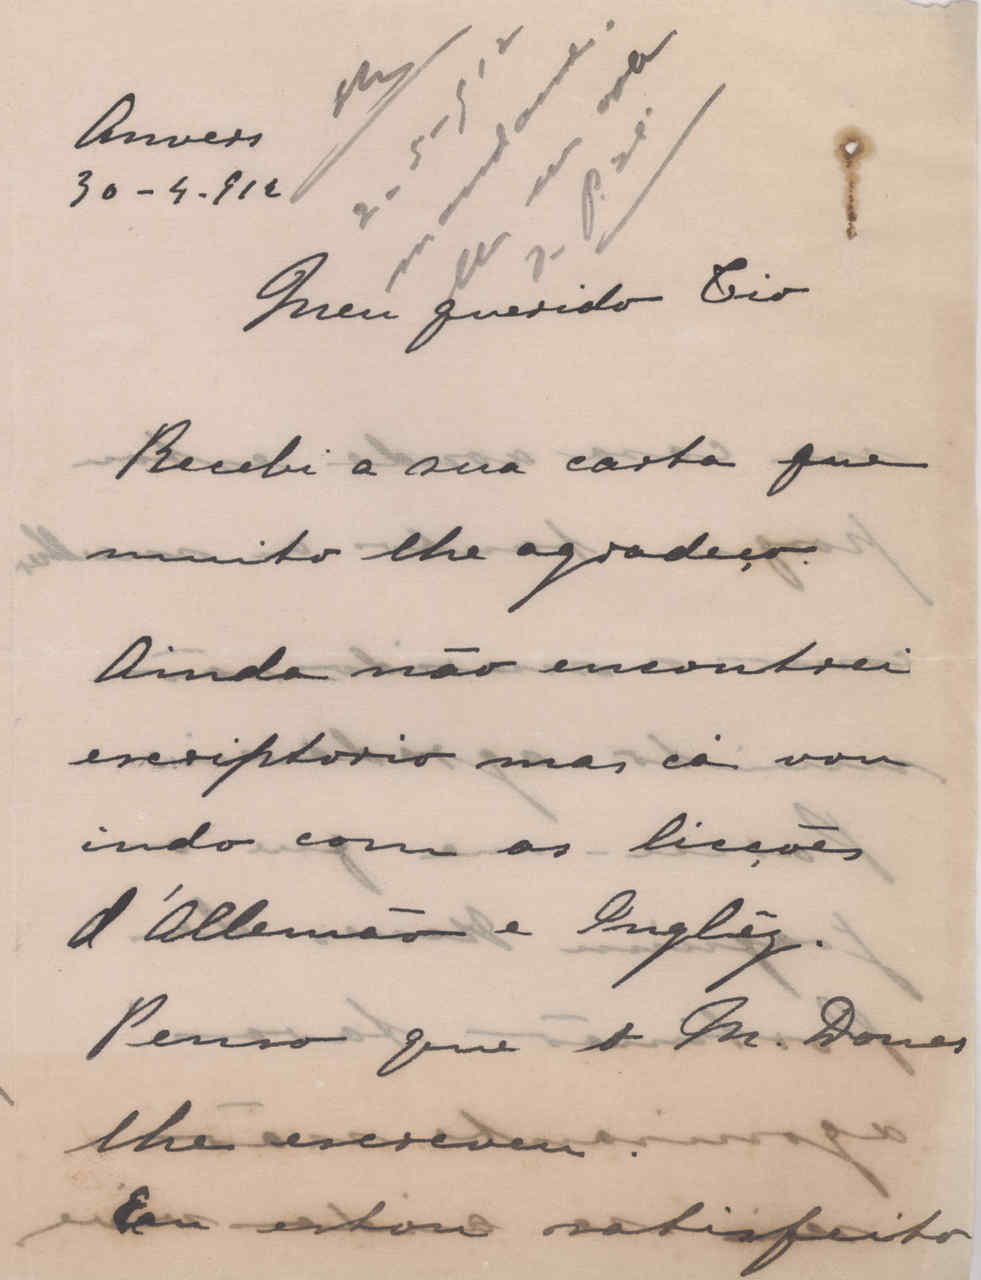 Anvers
30-4-912
2-5-912
Meu querido Tio
Recebi a sua carta que
muito lhe agradeço.
Ainda não encontrei
escriptorio mas cá vou
indo com as licções
d'Allemão e Inglêz.
Penso que o M. Dones
lhe escreveu.
Eu estou satisfeito